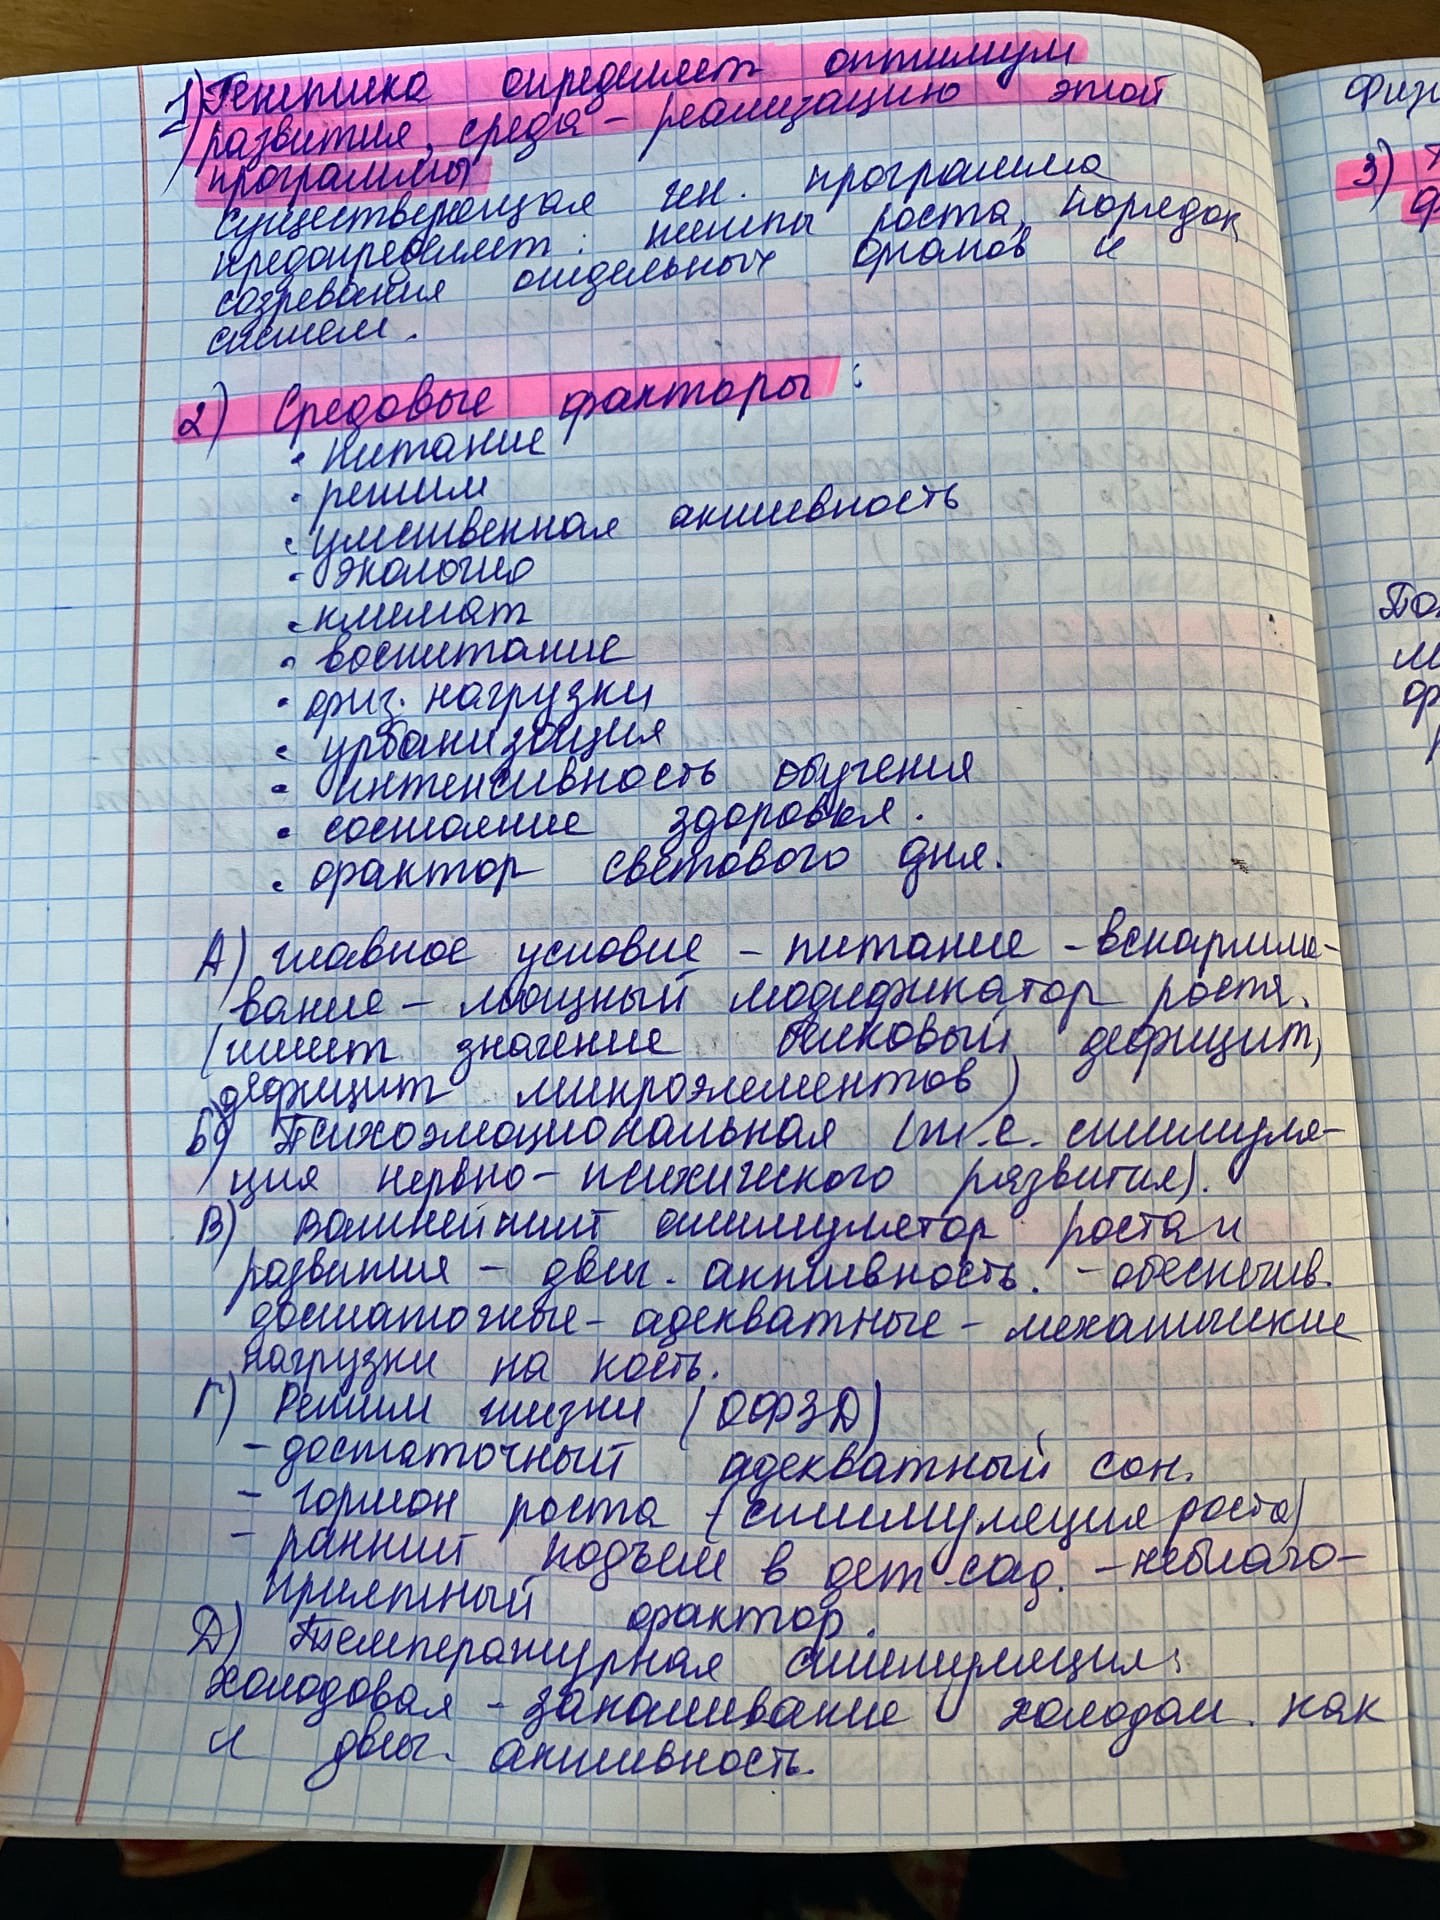 1) Генетика определяет оптимум
развития, среда – реализацию этой
программы
существующая ген. программа
предопределяет: темпы роста, порядок
созревания отдельных органов и
систем.
2) Средовые факторы:
• питание
• режим
• умственная активность
• экология
• климат
• воспитание
• физ. нагрузки
• урбанизация
• интенсивность обучения
• состояние здоровья.
• фактор светового дня.
А) главное условие – питание – вскармли-
вание – мощный модификатор роста.
(имеет значение белковый дефицит,
дефицит микроэлементов)
Б) Психоэмоциональная (т.е. стимуля-
ция нервно-психического развития).
В) важнейший стимулятор роста и
развития – двиг. активность. – обеспечив.
достаточные – адекватные – механические
нагрузки на кость.
Г) Режим жизни (ОФЗД)
– достаточный адекватный сон.
– гормон роста (стимуляция роста)
– ранний подъем в дет. сад. – неблаго-
приятный фактор.
Д) Температурная стимуляция:
холодовая – закаливание холодом. как
и двиг. активность.
физ
3)